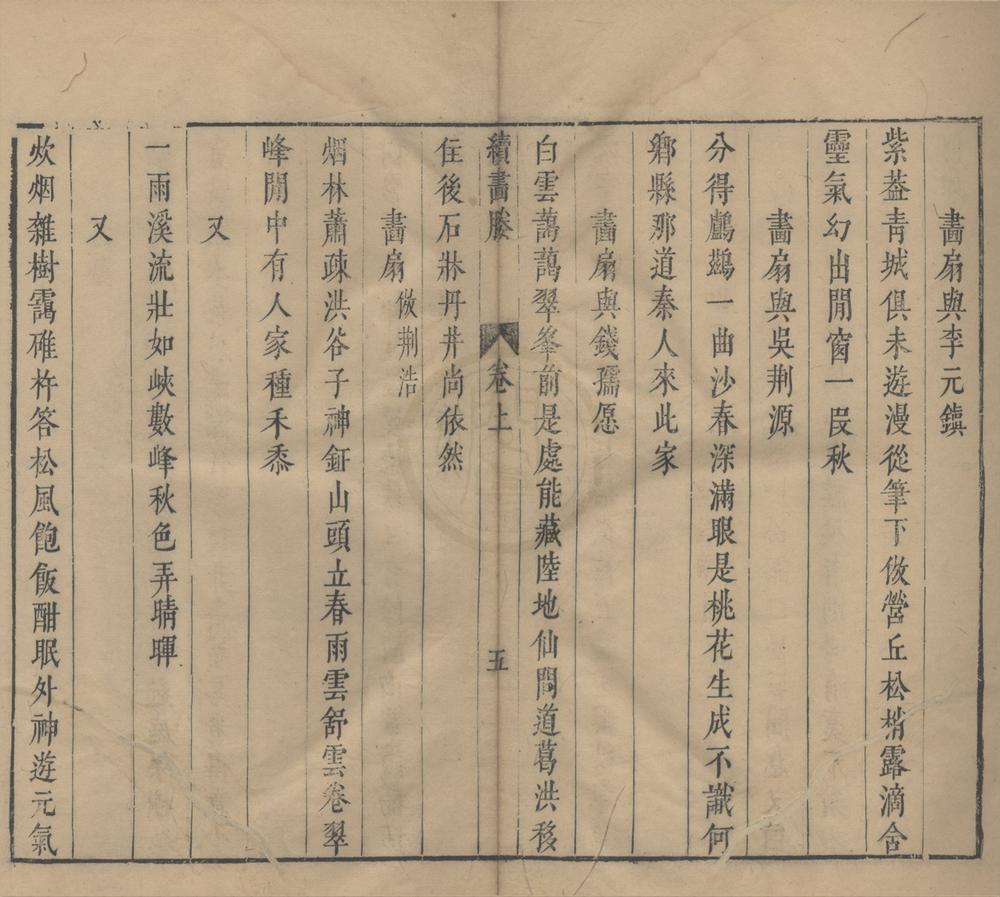 畫扇與李元鎮
紫葢青城俱未遊漫從筆下倣營丘松梢露滴含
靈氣幻出閒窗一段秋
畫扇與吳荆源
分得鸕鷀一曲沙春深滿眼是桃花生成不識何
鄉縣那道秦人來此家
畫扇與錢孺愿
白雲藹藹翠峯前是處能藏陸地仙問道葛洪移
續畫媵 卷上 五
住後石牀丹井尚依然
畫扇倣荆浩
烟林蕭疎洪谷子神鉦山頭立春雨雲舒雲卷翠
峰閒中有人家種禾黍
又
一雨溪流壯如峽數峰秋色弄晴暉
又
炊烟雜樹靄碓杵答松風飽飯酣眠外神遊元氣